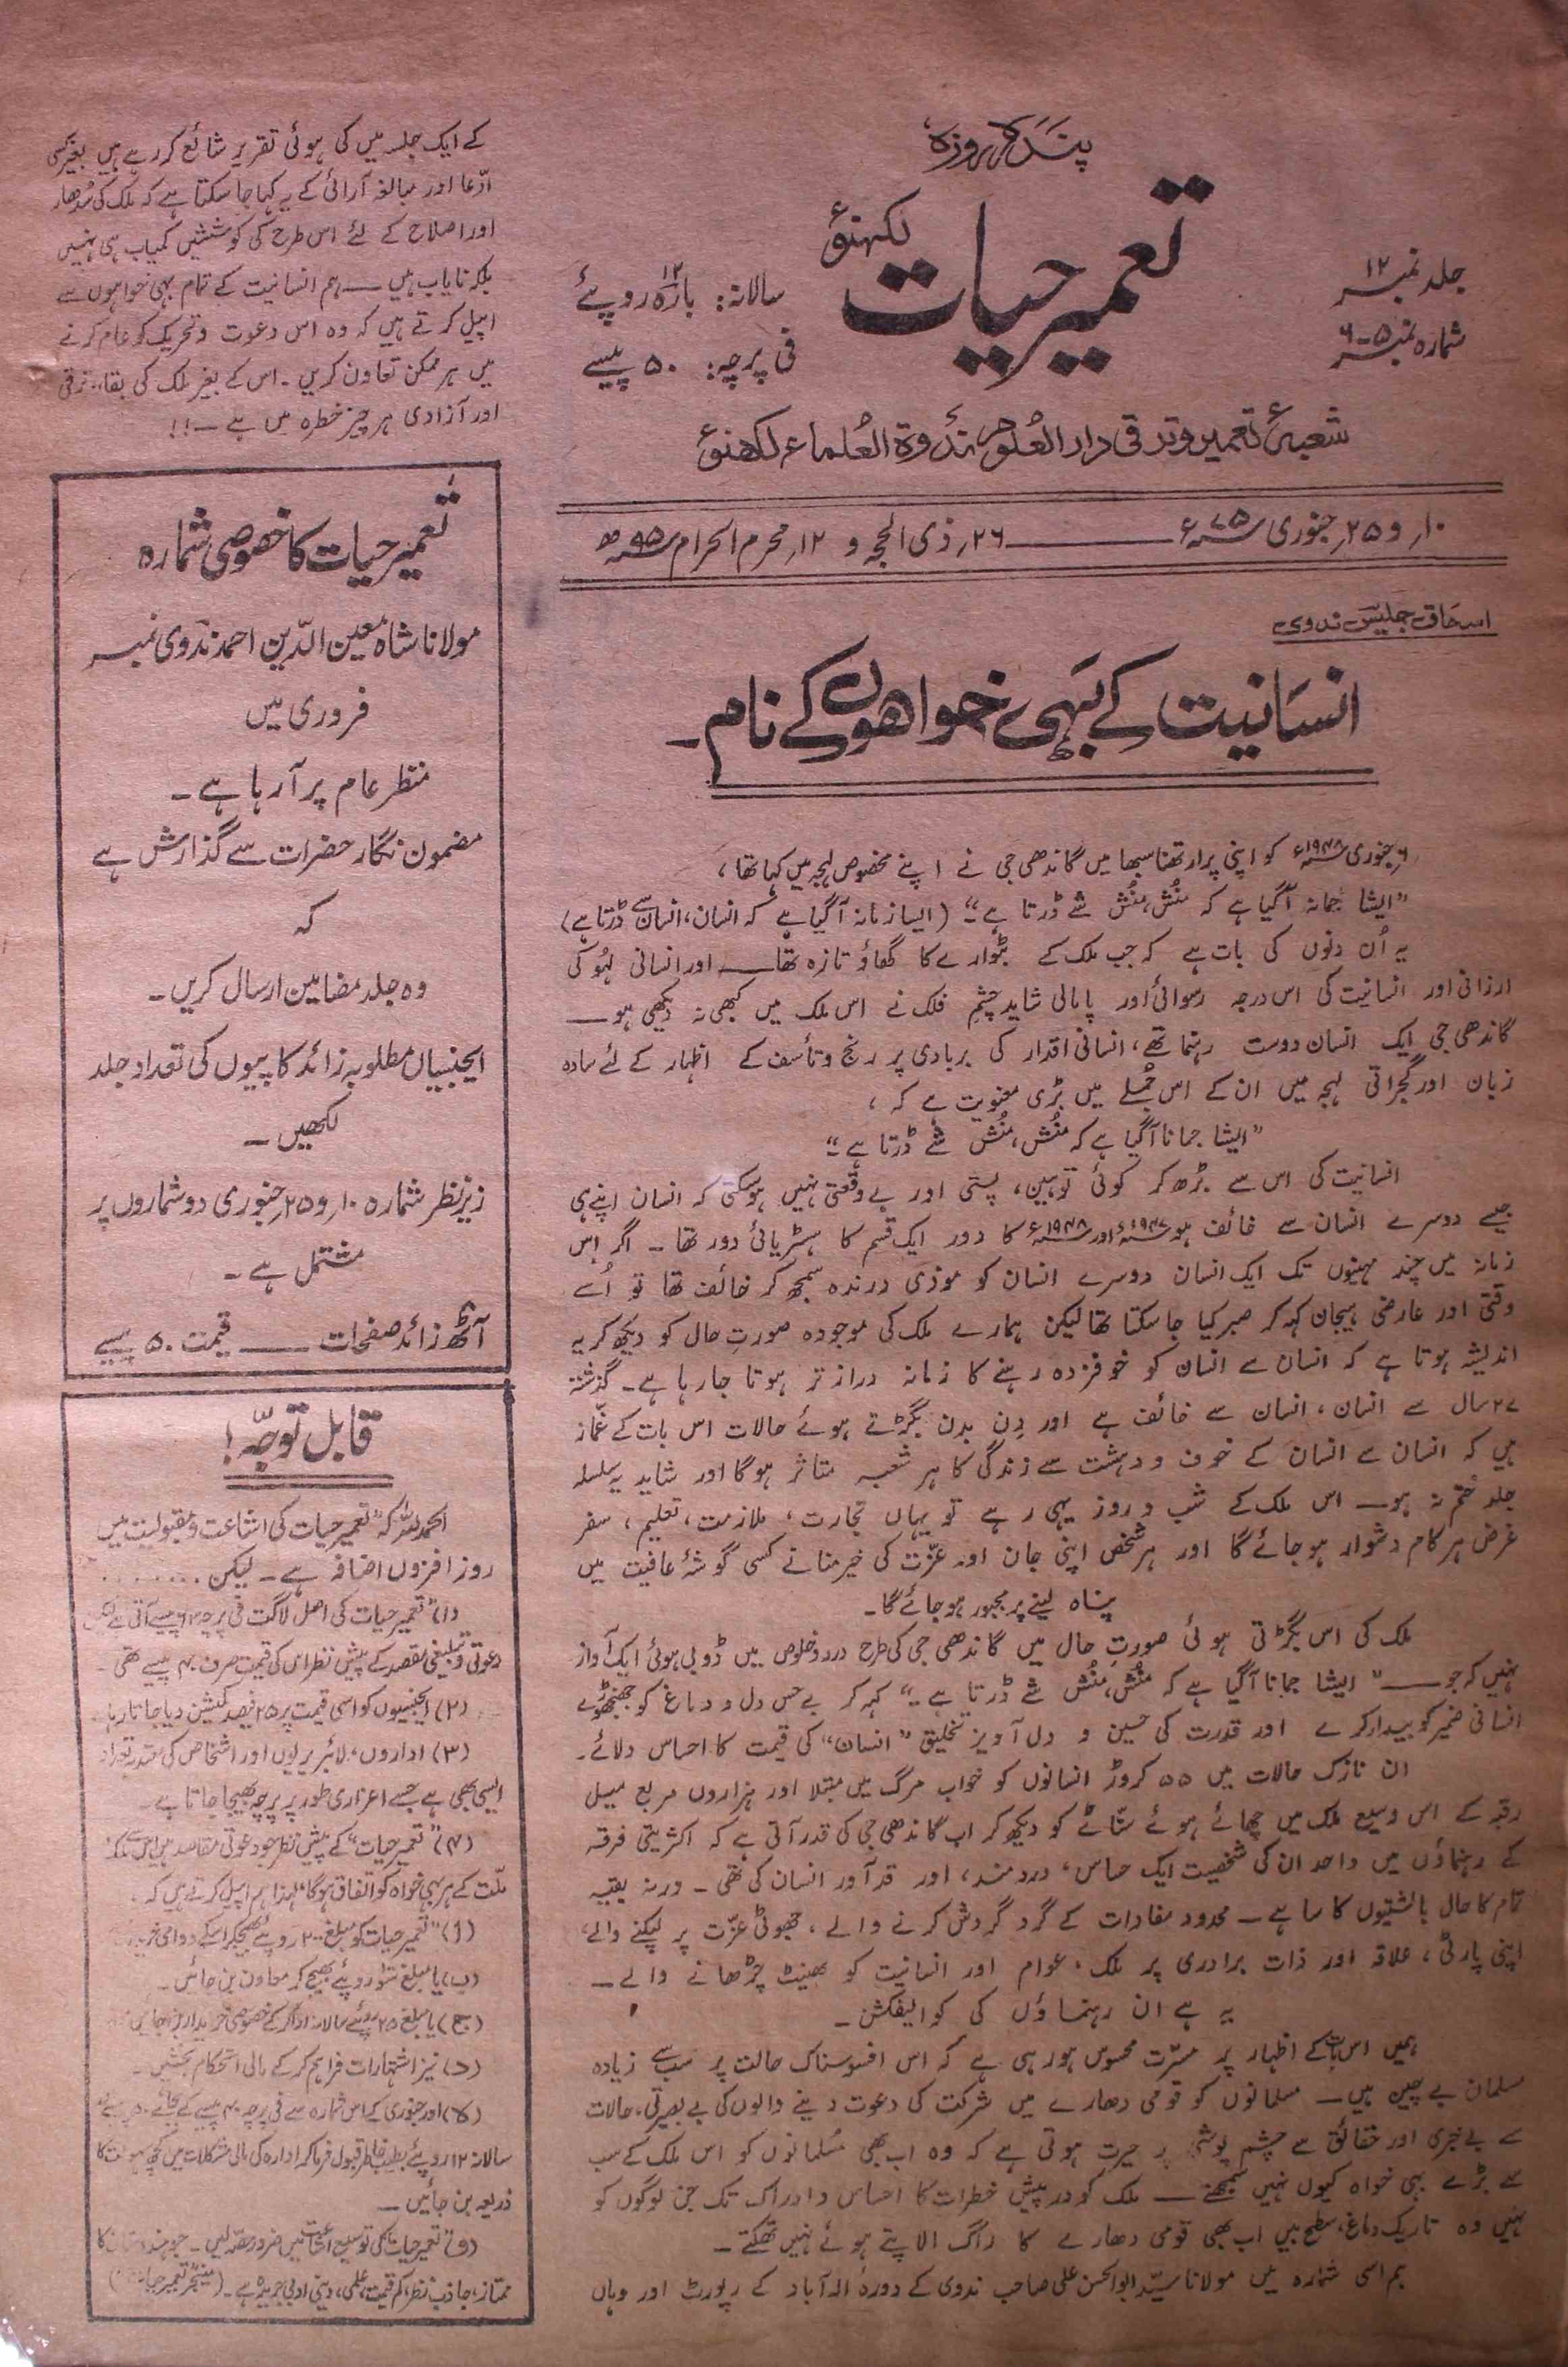 پندرہ روزہ
تعمیر حیات لکھنؤ
جلد نمبر ۱۲
شمارہ نمبر ۵-۶
سالانہ: بارہ ۱۲ روپئے
فی پرچہ: ۵۰ پیسے
شعبۂ تعمیر و ترقی دار العلوم ندوۃ العلماء لکھنؤ
۱۰؍ و ۲۵؍ جنوری ۷۵ء ——— ۲۶؍ ذی الحجہ و ۱۲؍ محرم الحرام ۹۵ھ
اسحاق جلیس ندوی
انسانیت کے بہی خواہوں کے نام۔
۶؍ جنوری ۱۹۴۸ء کو اپنی پرارتھنا سبھا میں گاندھی جی نے اپنے مخصوص لہجہ میں کہا تھا،
"ایشا جمانہ آگیا ہے کہ منُش، منُش شے ڈرتا ہے" (ایسا زمانہ آگیا ہے کہ انسان، انسان سے ڈرتا ہے)
یہ اُن دنوں کی بات ہے کہ جب ملک کے بٹوارے کا گھاؤ تازہ تھا — اور انسانی لہُو کی
ارزانی اور انسانیت کی اس درجہ رسوائی اور پامالی شاید چشمِ فلک نے اس ملک میں کبھی نہ دیکھی ہو —
گاندھی جی ایک انسان دوست رہنما تھے، انسانی اقدار کی بربادی پر رنج و تأسف کے اظہار کے لئے سادہ
زبان اور گجراتی لہجہ میں ان کے اس جُملے میں بڑی معنویت ہے کہ،
"ایشا جمانا آگیا ہے کہ منُش، منُش شے ڈرتا ہے"
انسانیت کی اس سے بڑھ کر کوئی توہین، پستی اور بے وقعتی نہیں ہوسکتی کہ انسان اپنے ہی
جیسے دوسرے انسان سے خائف ہو ۱۹۴۷ء اور ۱۹۴۸ء کا دور ایک قسم کا ہسٹریائی دور تھا۔ اگر اس
زمانہ میں چند مہینوں تک ایک انسان دوسرے انسان کو موذی درندہ سمجھ کر خائف تھا تو اُسے
وقتی اور عارضی ہیجان کہہ کر صبر کیا جاسکتا تھا لیکن ہمارے ملک کی موجودہ صورتِ حال کو دیکھ کر یہ
اندیشہ ہوتا ہے کہ انسان سے انسان کو خوفزدہ رہنے کا زمانہ دراز تر ہوتا جارہا ہے۔ گذشتہ
۲۷ سال سے انسان، انسان سے خائف ہے اور دِن بدن بگڑتے ہوئے حالات اس بات کے غمّاز
ہیں کہ انسان سے انسان کے خوف و دہشت سے زندگی کا ہر شعبہ متاثر ہوگا اور شاید یہ سلسلہ
جلد ختم نہ ہو — اس ملک کے شب و روز یہی رہے تو یہاں تجارت، ملازمت، تعلیم، سفر
غرض ہر کام دشوار ہوجائے گا اور ہر شخص اپنی جان اور عزّت کی خیر منانے کسی گوشۂ عافیت میں
پناہ لینے پر مجبور ہوجائے گا۔
ملک کی اس بگڑتی ہوئی صورتِ حال میں گاندھی جی کی طرح درد و خلوص میں ڈوبی ہوئی ایک آواز
نہیں کہ جو — "ایشا جمانا آگیا ہے کہ منُش، منُش شے ڈرتا ہے۔" کہہ کر بے حس دل و دماغ کو جھنجھوڑے
انسانی ضمیر کو بیدار کرے اور قدرت کی حسین و دل آویز تخلیق "انسان" کی قیمت کا احساس دلائے۔
ان نازک حالات میں ۵۵ کروڑ انسانوں کو خواب مرگ میں مبتلا اور ہزاروں مربع میل
رقبہ کے اس وسیع ملک میں چھائے ہوئے سنّاٹے کو دیکھ کر اب گاندھی جی کی قدر آتی ہے کہ اکثریتی فرقہ
کے رہنماؤں میں واحد ان کی شخصیت ایک حساس، دردمند، اور قدآور انسان کی تھی۔ ورنہ بقیہ
تمام کا حال بالشتیوں کا سا ہے۔ محدود مفادات کے گرد گردش کرنے والے، جھوٹی عزّت پر لپکنے والے،
اپنی پارٹی، علاقہ اور ذات برادری پر ملک، عوام اور انسانیت کو بھینٹ چڑھانے والے —
یہ ہے ان رہنماؤں کی کوالیفکشن۔
ہمیں اس بات کے اظہار پر مسرّت محسوس ہورہی ہے کہ اس افسوسناک حالت پر سب سے زیادہ
مسلمان بے چین ہیں — مسلمانوں کو قومی دھارے میں شرکت کی دعوت دینے والوں کی بے بصیرتی، حالات
سے بے خبری اور حقائق سے چشم پوشی پر حیرت ہوتی ہے کہ وہ اب بھی مُسلمانوں کو اس ملک کے سب
سے بڑے بہی خواہ کیوں نہیں سمجھتے — ملک کو درپیش خطرات کا احساس و ادراک تک جن لوگوں کو
نہیں وہ تاریک دماغ، سطح بیں اب بھی قومی دھارے کا راگ الاپتے ہوئے نہیں تھکتے۔
ہم اسی شمارہ میں مولانا سید ابوالحسن علی صاحب ندوی کے دورۂ الہ آباد کے رپورٹ اور وہاں
کے ایک جلسہ میں کی ہوئی تقریر شائع کررہے ہیں بغیر کسی
ادّعا اور مبالغہ آرائی کے یہ کہا جاسکتا ہے کہ ملک کی سُدھار
اور اصلاح کے لئے اس طرح کی کوششیں کمیاب ہی نہیں
بلکہ نایاب ہیں — ہم انسانیت کے تمام بہی خواہوں سے
اپیل کرتے ہیں کہ وہ اس دعوت و تحریک کو عام کرنے
میں ہر ممکن تعاون کریں۔ اس کے بغیر ملک کی بقاء، ترقی
اور آزادی ہر چیز خطرہ میں ہے —!!
تعمیر حیات کا خصوصی شمارہ
مولانا شاہ معین الدّین احمد ندوی نمبر
فروری میں
منظر عام پر آرہا ہے۔
مضمون نگار حضرات سے گذارش ہے
کہ
وہ جلد مضامین ارسال کریں۔
ایجنسیاں مطلوبہ زائد کاپیوں کی تعداد جلد
لکھیں۔
زیر نظر شمارہ ۱۰؍ و ۲۵؍ جنوری دو شماروں پر
مشتمل ہے۔
آٹھ زائد صفحات —— قیمت ۵۰ پیسے
قابل توجّہ!
الحمد للہ کہ "تعمیر حیات کی اشاعت و مقبولیت میں
روز افزوں اضافہ ہے۔ لیکن ........
(۱) "تعمیر حیات کی اصل لاگت فی پرچہ ۶۳ پیسے آتی ہے لیکن
دعوتی و تبلیغی مقصد کے پیش نظر اس کی قیمت صرف ۴۰ پیسے تھی۔
(۲) ایجنسیوں کو اسی قیمت پر ۲۵ فیصد کمیشن دیا جاتا رہا۔
(۳) اداروں، لائبریریوں اور اشخاص کی معتدبہ تعداد
ایسی بھی ہے جسے اعزازی طور پر پرچہ بھیجا جاتا ہے۔
(۴) "تعمیر حیات" کے پیش نظر جو دعوتی مقاصد ہیں اس سے ملک و
ملّت کے ہر بہی خواہ کو اتفاق ہوگا، لہٰذا ہم اپیل کرتے ہیں کہ۔
(أ) "تعمیر حیات کو مبلغ ۲۰۰ روپئے بھیجکر اسکے دوامی خریدار
(ب) یا مبلغ سَو روپئے بھیج کر معاون بن جائیں۔
(ج) یا مبلغ ۲۵ روپئے سالانہ ادا کر کے خصوصی خریدار بن جائیں
(د) نیز اشتہارات فراہم کر کے مالی استحکام بخشیں۔
(ہ) اور جنوری کے اس شمارہ سے فی پرچہ ۴۰ پیسے کے بجائے ۵۰ پیسے
سالانہ ۱۲ روپئے بطیب خاطر قبول فرما کر ادارہ کی مالی مشکلات میں کچھ سہولت کا
ذریعہ بن جائیں —
(و) تعمیر حیات کی توسیع اشاعت میں ضرور حصّہ لیں۔ جو ہندوستان کا
ممتاز، جاذب نظر، کم قیمت، علمی، دینی ادبی جریدہ ہے۔ (منیجر تعمیر حیات)